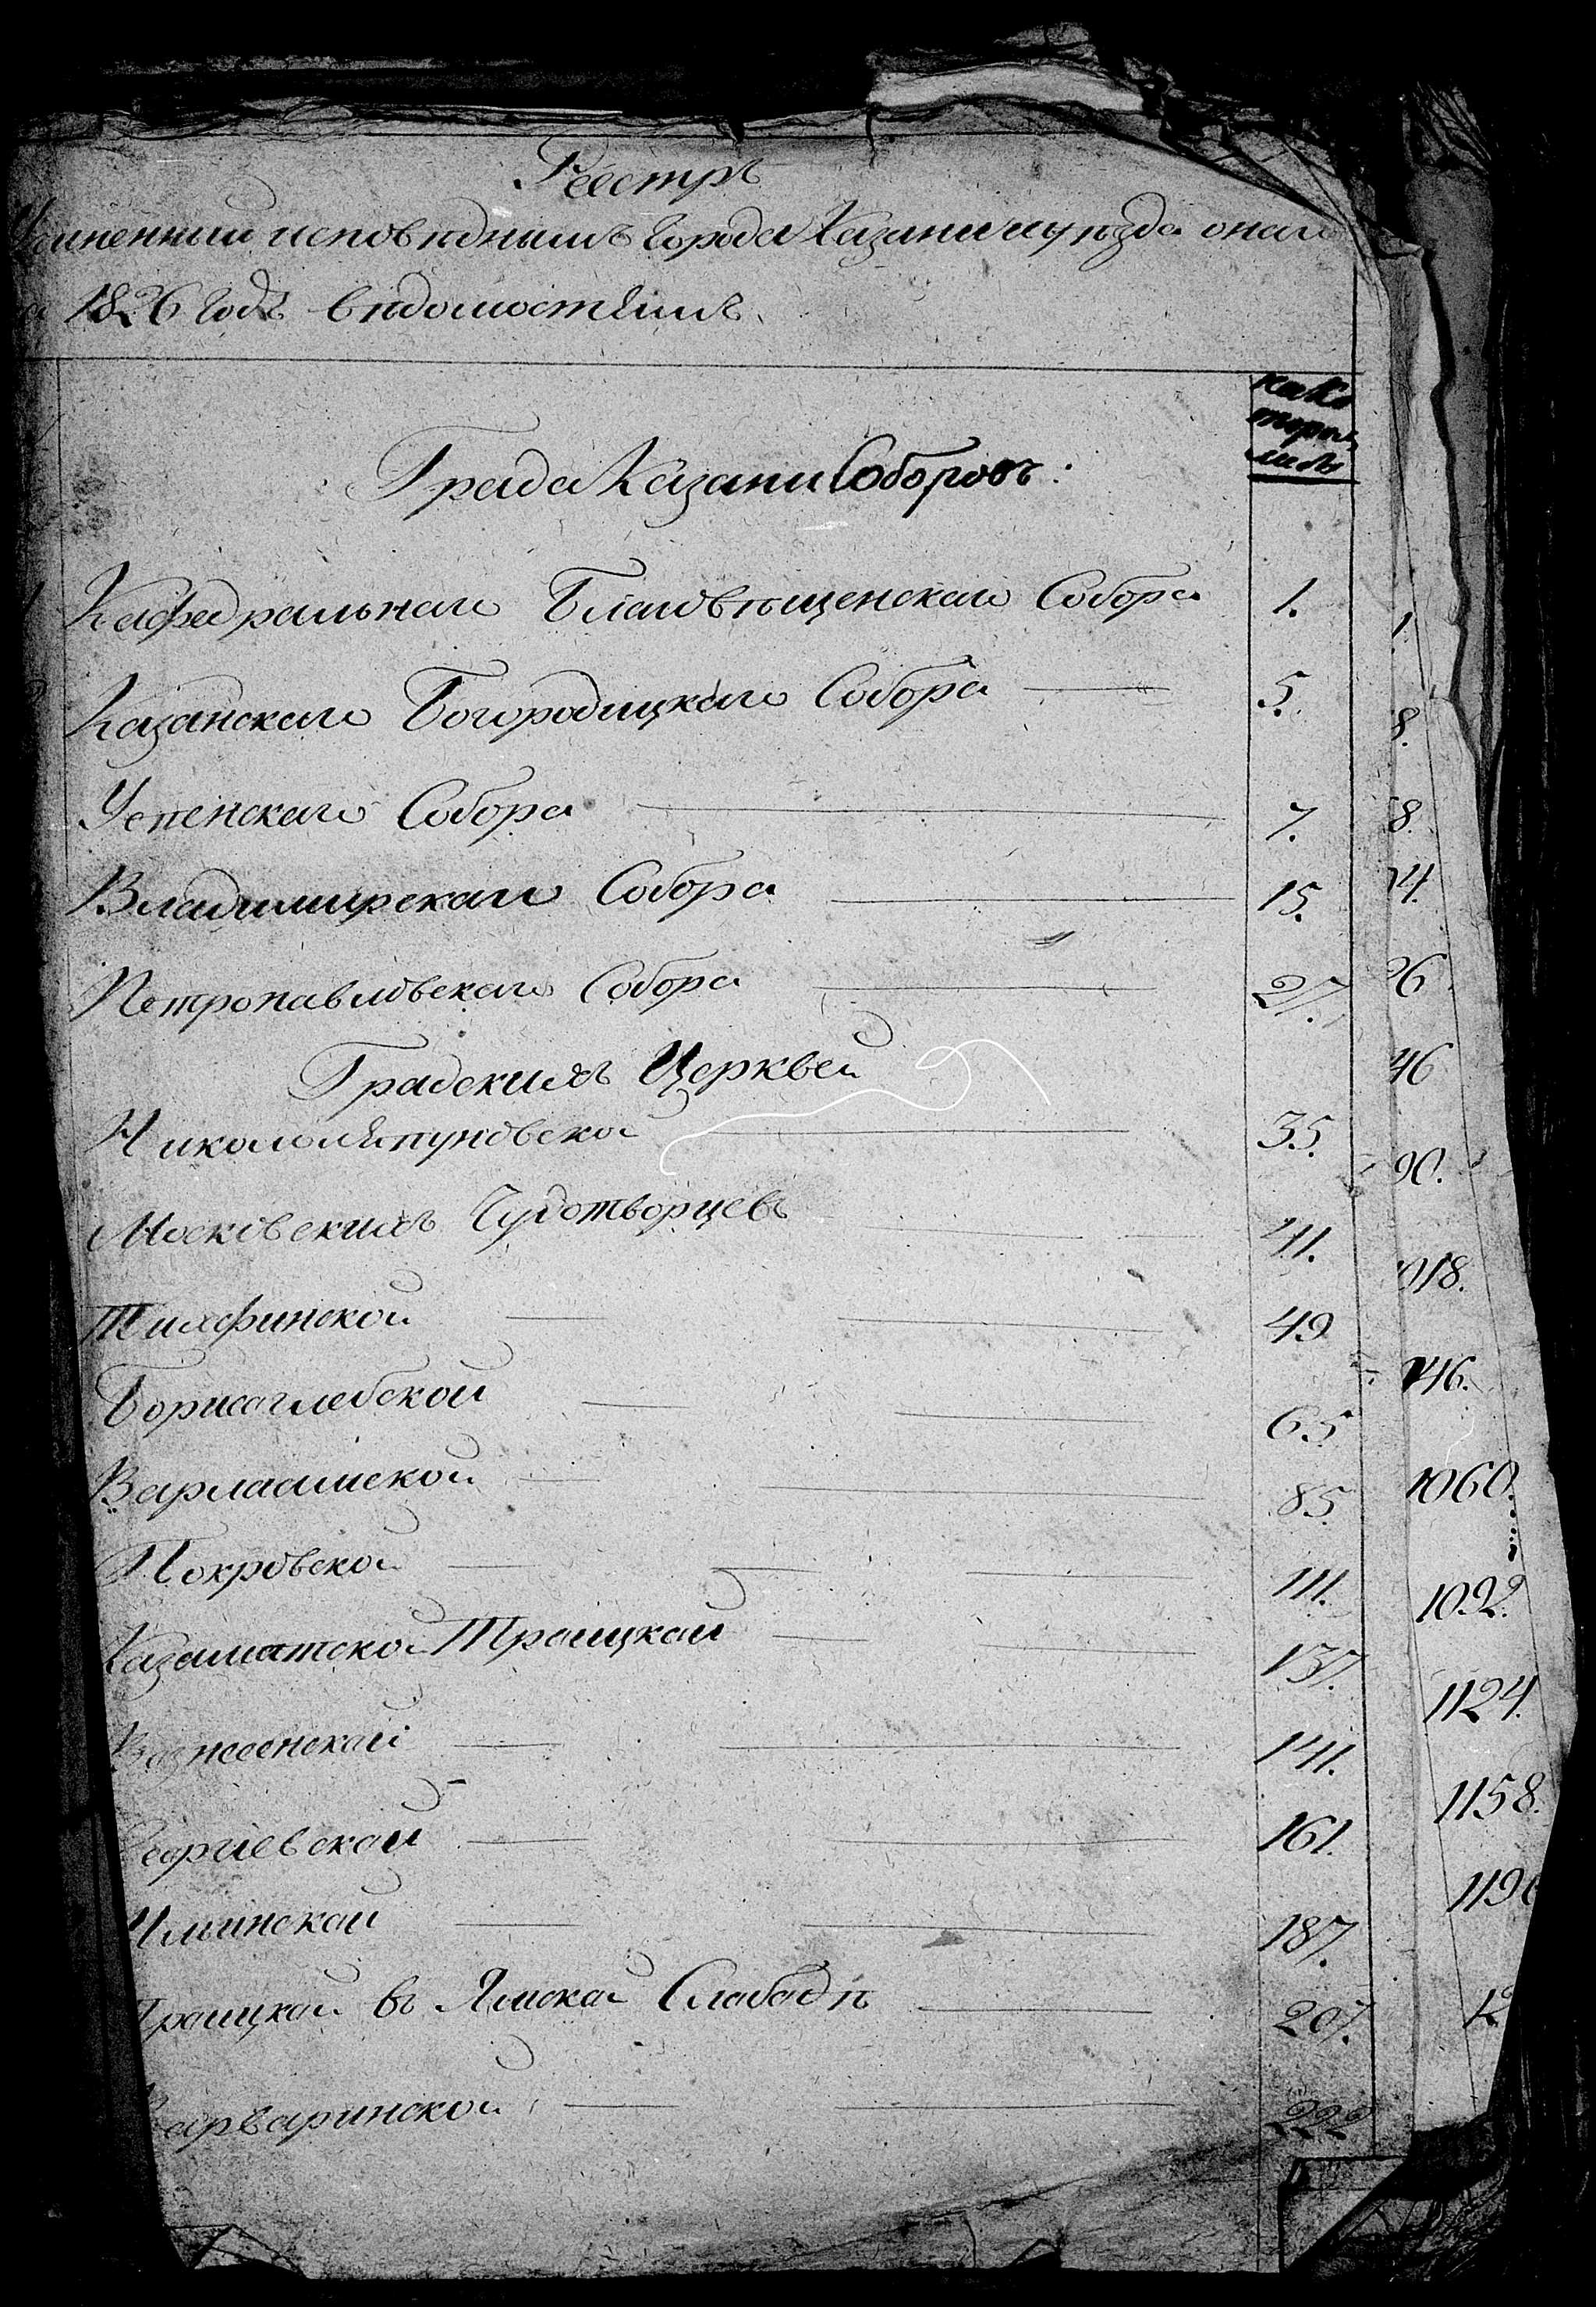 Реестръ
Учиненный исповѣднымъ города Казани и уѣзда онаго
за 1826 годъ вѣдомостямъ.
на ко
тором
листѣ
Града Казани Соборовъ:
Кафедральнаго Благовѣщенскаго Собора 1. 1.
Казанскаго Богородицкаго Собора 5. 8.
Успенскаго Собора 7. 8.
Владимирскаго Собора 15. 4.
Петропавловскаго Собора 27. 26
Градскихъ Церквей 46
Никололяпуновской 35.
90.
Московскихъ Чудотворцевъ 41.
018.
Тихфинской 49
Борисоглебской 65 46.
Варлаамской 85 1060.
Покровской 111. 1092.
Казематской Троицкой 137.
1124.
Вознесенской 141.
1158.
Георгіевской 161.
119
Ильинской 187.
Троицкой въ Ямской Слабодѣ 207. 12
Варваринской 222